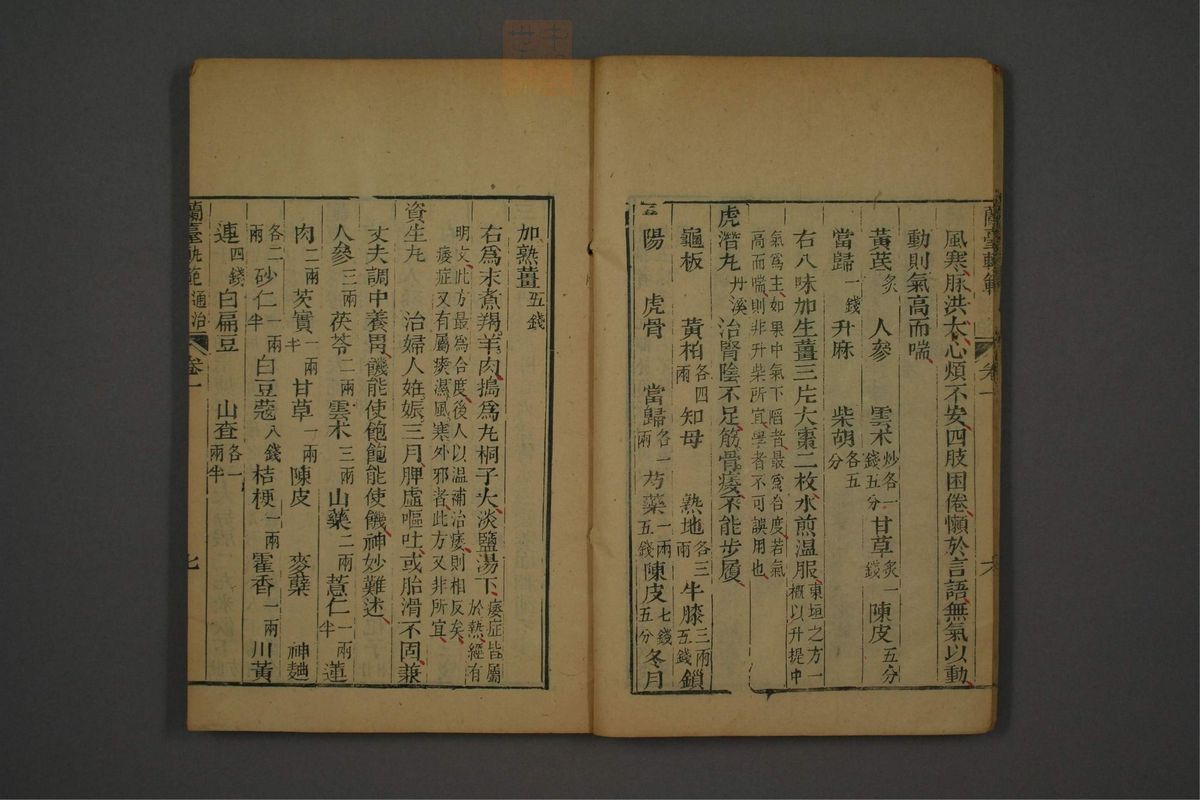 蘭臺軌範
卷一
六
風寒脉洪大心煩不安四肢困倦懶於言語無氣以動
動則氣高而喘
黃芪炙 人參 雲术炒各一錢五分 甘草炙一錢 陳皮五分
當歸一錢 升麻 柴胡各五分
右八味加生薑三片大棗二枚水煎温服東垣之方一概以升提中
氣爲主如果中氣下陷者最爲合度若氣
高而喘則非升柴所宜學者不可誤用也
虎潛丸丹溪 治腎陰不足筋骨痿不能步履
龜板 黃柏各四兩 知母 熟地各三兩 牛膝三兩五錢 鎖
陽 虎骨 當歸各一兩 芍藥一兩五錢 陳皮七錢五分 冬月
加熟薑五錢
右爲末煮羯羊肉搗爲丸桐子大淡鹽湯下痿症皆屬於熱經有
明文此方最爲合度後人以温補治痿則相反矣
痿症又有屬痰濕風寒外邪者此方又非所宜
資生丸 治婦人姙娠三月脾虛嘔吐或胎滑不固兼
丈夫調中養胃饑能使飽飽能使饑神妙難述
人參三兩 茯苓二兩 雲术三兩 山藥二兩 薏仁一兩半 蓮
肉二兩 芡實一兩半 甘草一兩 陳皮 麥蘖 神麯
各二兩 砂仁一兩半 白豆蔻八錢 桔梗一兩 霍香一兩 川黃
連四錢 白扁豆 山查各一兩半
蘭臺軌範 通治
卷一
七